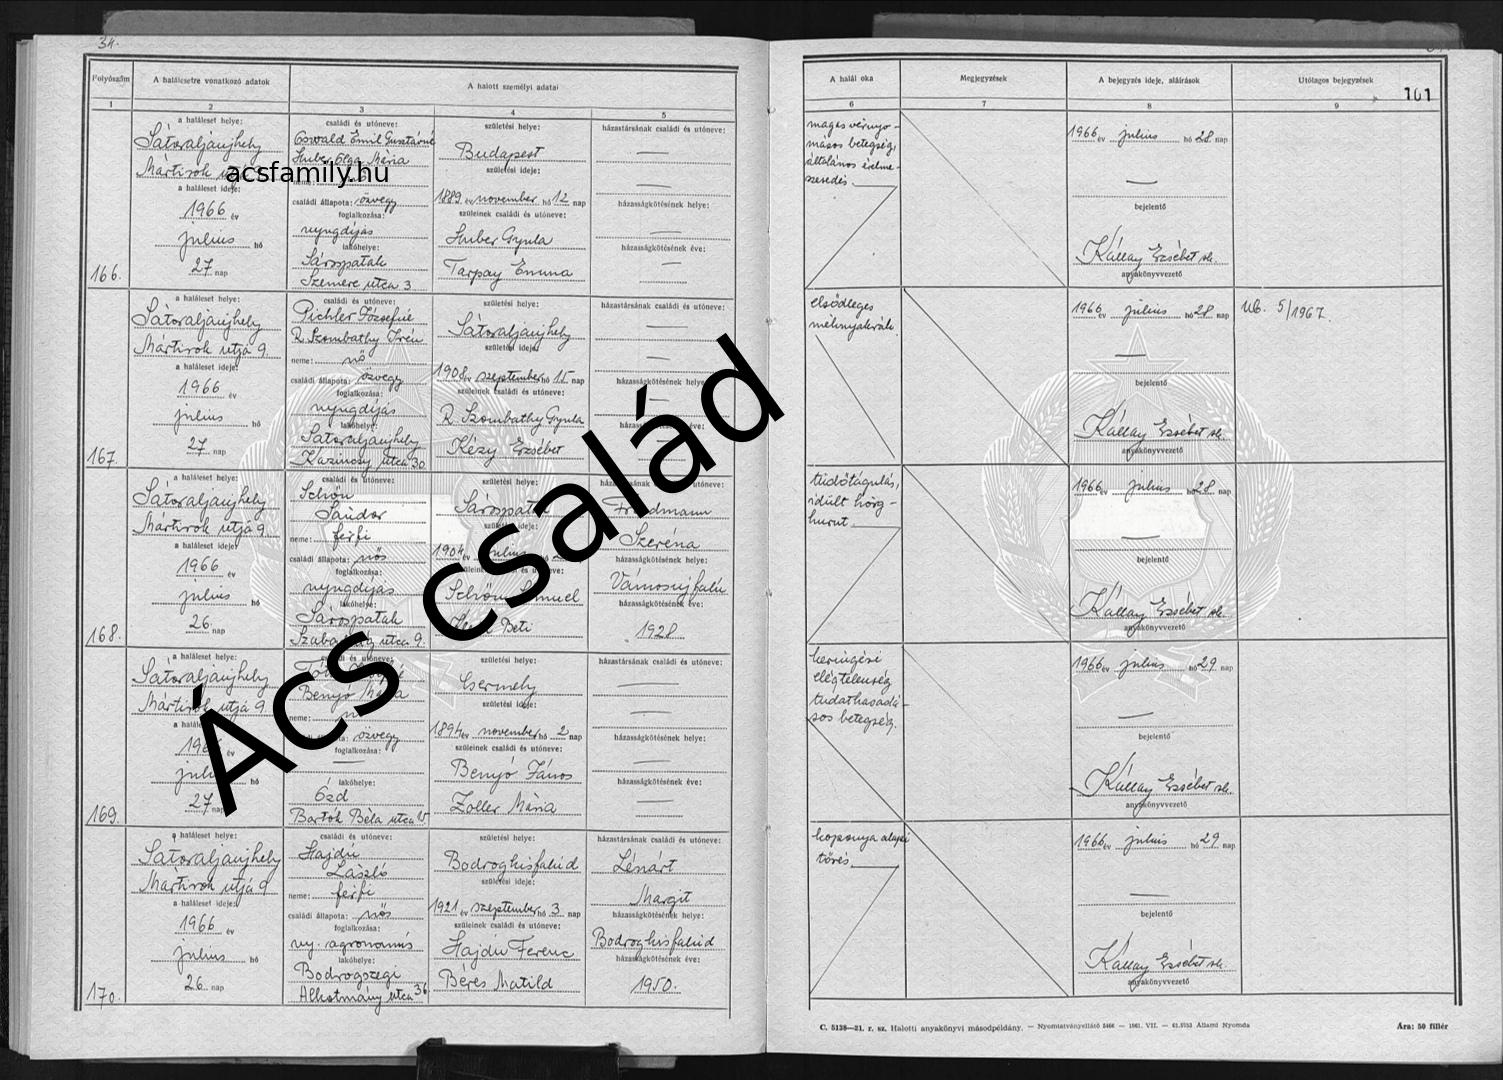 34.
Folyószám
A halálesetre vonatkozó adatok
A halott személyi adatai
1
2
3
4
5
a haláleset helye:
Sátoraljaujhely
Mártirok
a haláleset ideje:
1966 év
julius hó
27 nap
166.
családi és utóneve:
Oswald Emil Gusztávné
Huber Olga Mária
neme:
családi állapota: özvegy
foglalkozása:
nyugdijas
lakóhelye:
Sárospatak
Szemere utca 3
születési helye:
Budapest
születési ideje:
1889 év november hó 12 nap
szüleinek családi és utóneve:
Huber Gyula
Tarpay Emma
házastársának családi és utóneve:
házasságkötésének helye:
házasságkötésének éve:
a haláleset helye:
Sátoraljaujhely
Mártirok utja 9.
a haláleset ideje:
1966 év
julius hó
27 nap
167.
családi és utóneve:
Pichler Józsefné
R. Szombathy Irén
neme: nő
családi állapota: özvegy
foglalkozása:
nyugdijas
lakóhelye:
Sátoraljaujhely
Kazinczy utca 30
születési helye:
Sátoraljaujhely
születési ideje:
1908 év szeptember hó 15 nap
szüleinek családi és utóneve:
R. Szombathy Gyula
Kézy Erzsébet
házastársának családi és utóneve:
házasságkötésének helye:
házasságkötésének éve:
a haláleset helye:
Sátoraljaujhely
Mártirok utja 9.
a haláleset ideje:
1966 év
julius hó
26. nap
168.
családi és utóneve:
Schön
Sándor
neme: férfi
családi állapota: nős
foglalkozása:
nyugdijas
lakóhelye:
Sárospatak
utca 9.
születési helye:
Sárospatak
születési ideje:
1904 év julius
Schön
Beti
házastársának családi és utóneve:
Friedmann
Szeréna
házasságkötésének helye:
Vámosujfalu
házasságkötésének éve:
1928
a haláleset helye:
Sátoraljaujhely
Mártirok utja 9.
a haláleset
év
hó
27 nap
169.
családi és utóneve:
Benyó Mária
neme:
családi állapota: özvegy
foglalkozása:
lakóhelye:
Ózd
Bartók Béla utca
születési helye:
Csermely
születési ideje:
1894 év november hó 2 nap
szüleinek családi és utóneve:
Benyó János
Zoller Mária
házastársának családi és utóneve:
házasságkötésének helye:
házasságkötésének éve:
a haláleset helye:
Sátoraljaujhely
Mártirok utja 9
a haláleset ideje:
1966 év
julius hó
26. nap
170.
családi és utóneve:
Hajdu
László
neme: férfi
családi állapota: nős
foglalkozása:
ny. agronomus
lakóhelye:
Bodrogszegi
Alkotmány utca 36
születési helye:
Bodrogkisfalud
születési ideje:
1921 év szeptember hó 3 nap
szüleinek családi és utóneve:
Hajdu Ferenc
Béres Matild
házastársának családi és utóneve:
Lénárt
Margit
házasságkötésének helye:
Bodrogkisfalud
házasságkötésének éve:
1950.
A halál oka
Megjegyzések
A bejegyzés ideje, aláírások
Utólagos bejegyzések
101
6
7
8
9
magas vérnyo-
másos betegség,
általános érelme-
szesedés
1966 év julius hó 28 nap
bejelentő
Kállay Erzsébet sk.
anyakönyvvezető
elsődleges
méhnyakrák.
1966 év julius hó 28 nap
bejelentő
Kállay Erzsébet sk.
anyakönyvvezető
Ub. 5/1967.
tüdőtágulás,
idült hörg-
hurut
1966 év julius hó 28 nap
bejelentő
Kállay Erzsébet sk.
anyakönyvvezető
keringési
elégtelenség
tudathasadá-
sos betegség.
1966 év julius hó 29 nap
bejelentő
Kállay Erzsébet sk.
anyakönyvvezető
koponya alapi
törés
1966 év julius hó 29 nap
bejelentő
Kállay Erzsébet sk.
anyakönyvvezető
C. 5138—21. r. sz. Halotti anyakönyvi másodpéldány. — Nyomtatványellátó 5466 — 1961. VII. — 61.5753 Állami Nyomda
Ára: 50 fillér
acsfamily.hu
Ács család